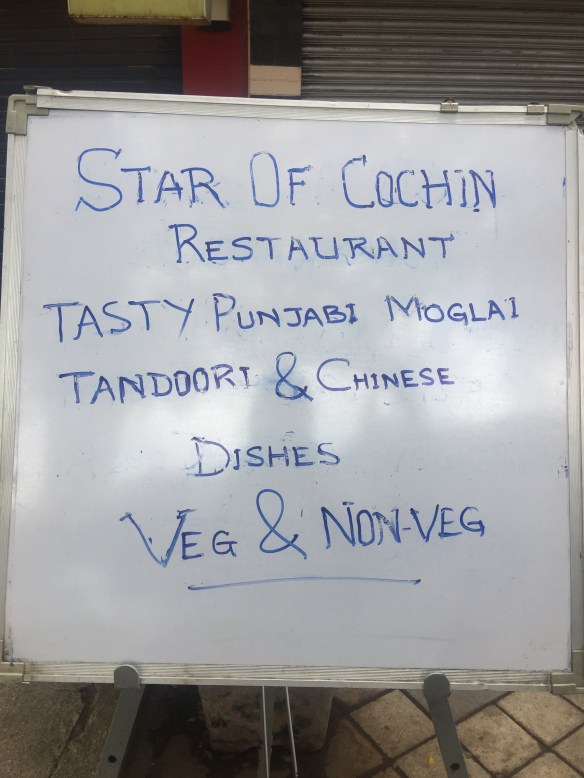 STAR OF COCHIN
RESTAURANT
TASTY PUNJABI MOGLAI
TANDOORI & CHINESE
DISHES
VEG & NON-VEG